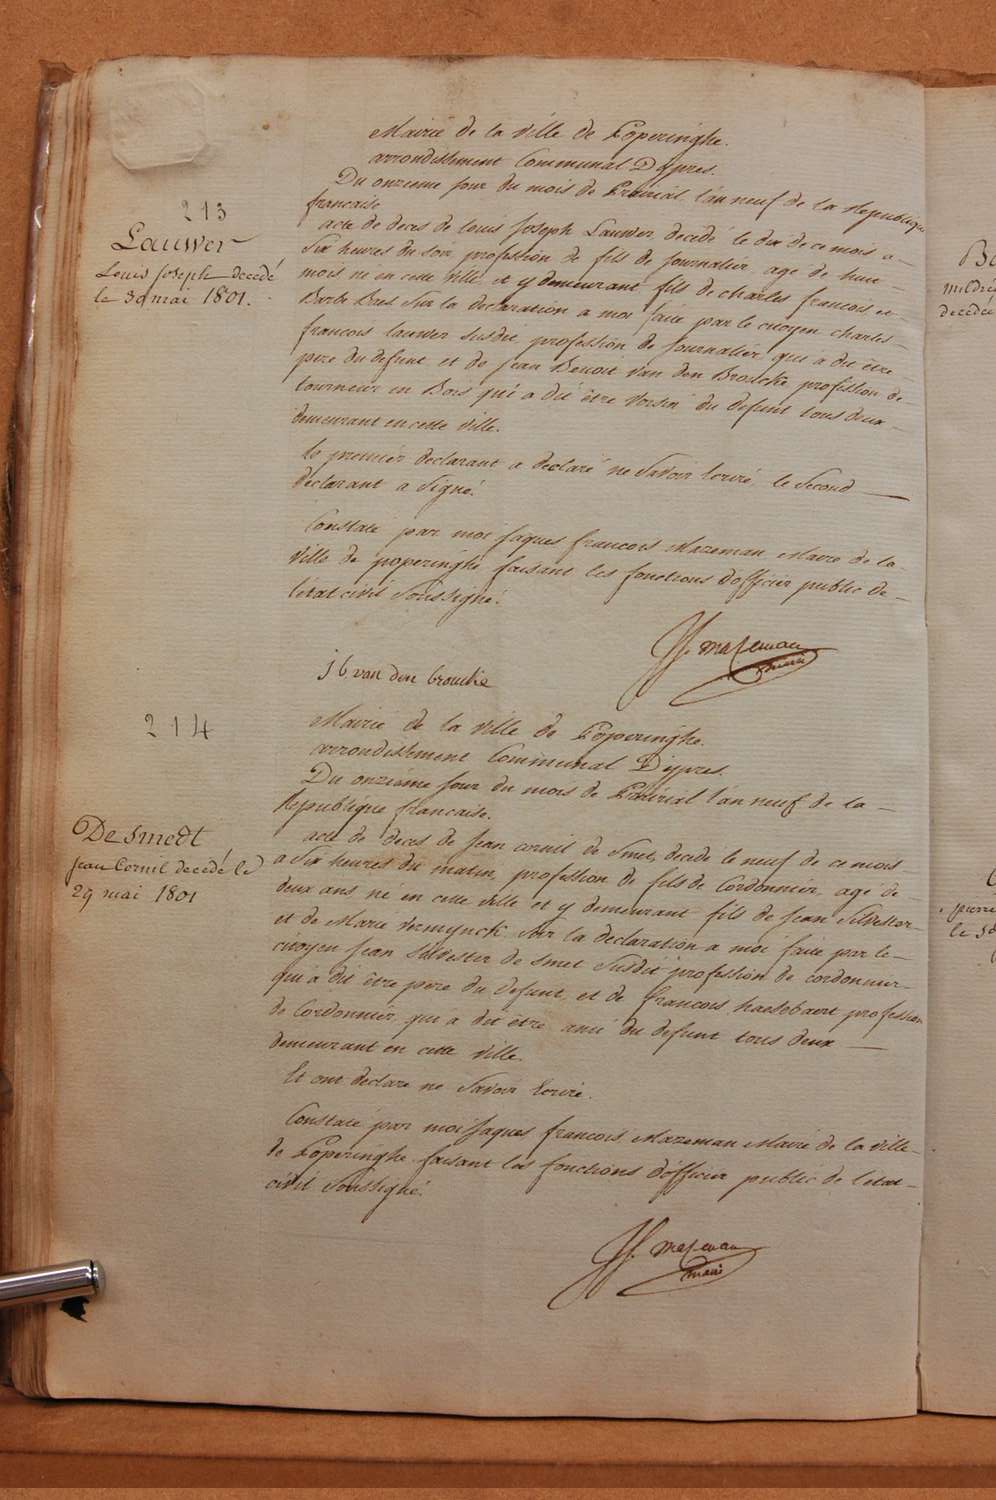 213
Lauwer
Louis Joseph decedé
le 30 mai 1801.
Mairie de la ville de Poperinghe.
arrondissement Communal D'ypres.
Du onzieme jour du mois de Prairial l'an neuf de la Republique
francaise
acte de deces de louis Joseph Lauwer, decedé le dix de ce mois a
Six heures du soir profession de fils de Journalier agé de huit
mois né en cette ville et y demeurant fils de charles francois et
Barbe Bril Sur la declaration a moi faite par le citoyen charles
francois lauwer susdit profession de Journalier qui a dit être
pere du defunt et de Jean Benoit Van den Broucke profession de
tourneur en Bois qui a dit être Voisin du defunt tous deux
demeurant en cette ville.
le premier declarant a declaré ne savoir ecrire le Second
declarant a Signé.
Constaté par moi Jaques francois Mazeman Maire de la
Ville de poperinghe faisant les fonctions d'officier public de
l'etat civil soussigné.
JF. mazeman
maire
j b van den broucke
214
De Smedt
jean Cornil decedé le
29 mai 1801
Mairie de la ville de Poperinghe.
arrondissement Communal D'ypres.
Du onziéme jour du mois de Prairial l'an neuf de la
Republique francaise.
acte de deces de Jean cornil de Smet, decedé le neuf de ce mois
a Six heures du matin, profession de fils de Cordonnier, agé de
deux ans né en cette ville et y demeurant fils de Jean Silvester
et de Marie Sur la declaration a moi faite par le
citoyen Jean Silvester de Smet Susdit profession de cordonnier
qui a dit être pere du defunt, et de francois haesebaert profession
de Cordonnier qui a dit être ami du defunt tous deux
demeurant en cette ville.
Et ont declare ne savoir Ecrire.
Constaté par moi Jaques francois Mazeman Maire de la ville
de Poperinghe faisant les fonctions d'officier public de l'etat
civil soussigné.
JF. mazeman
maire